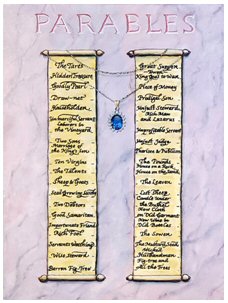 PARABLES
The Tares
Hidden Treasure
Goodly Pearl
Draw-net
Householder
Unmerciful Servant
Laborers in
the Vineyard
Two Sons
Marriage of
the King's Son
Ten Virgins
The Talents
Sheep & Goats
Seed Growing Secretly
Two Debtors
Good Samaritan
Importunate Friend
Rich Fool
Servants Watching
Wise Steward
Barren Fig-Tree
Great Supper
Tower,
King Goes to War
Piece of Money
Prodigal Son
Unjust Steward
Rich Man
and Lazarus
Unprofitable Servant
Unjust Judge
Pharisee & Publican
The Pounds
House on a Rock
House on the Sand
The Leaven
Lost Sheep
Candle Under
the Bushel
New Cloth
on Old Garment
New Wine in
Old Bottles
The Sower
The Mustard Seed
Wicked
Husbandmen
Fig-tree and
All the Trees